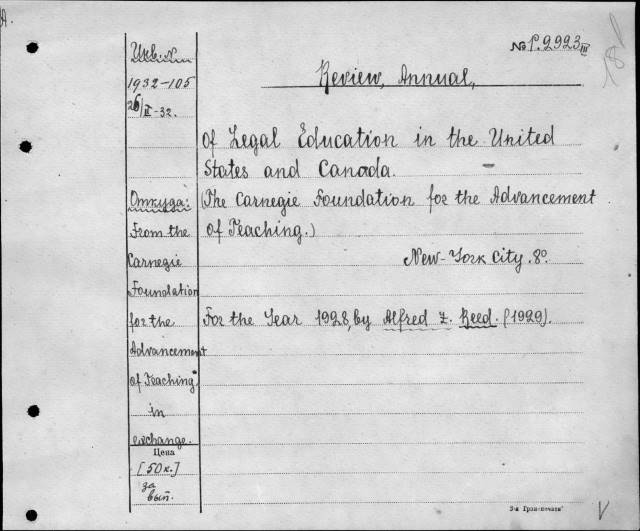 № P.2923 III
Инв. №
1932-105
26/II-32.
Review, Annual,
of Legal Education in the United
States and Canada.
(The Carnegie Foundation for the Advancement
of Teaching.)
New-York City. 8º.
For the Year 1928, by Alfred Z. Reed. (1929).
Откуда:
From the
Carnegie
Foundation
for the
Advancement
of Teaching
in
exchange.
Цена
[50 к.]
за
вып.
V